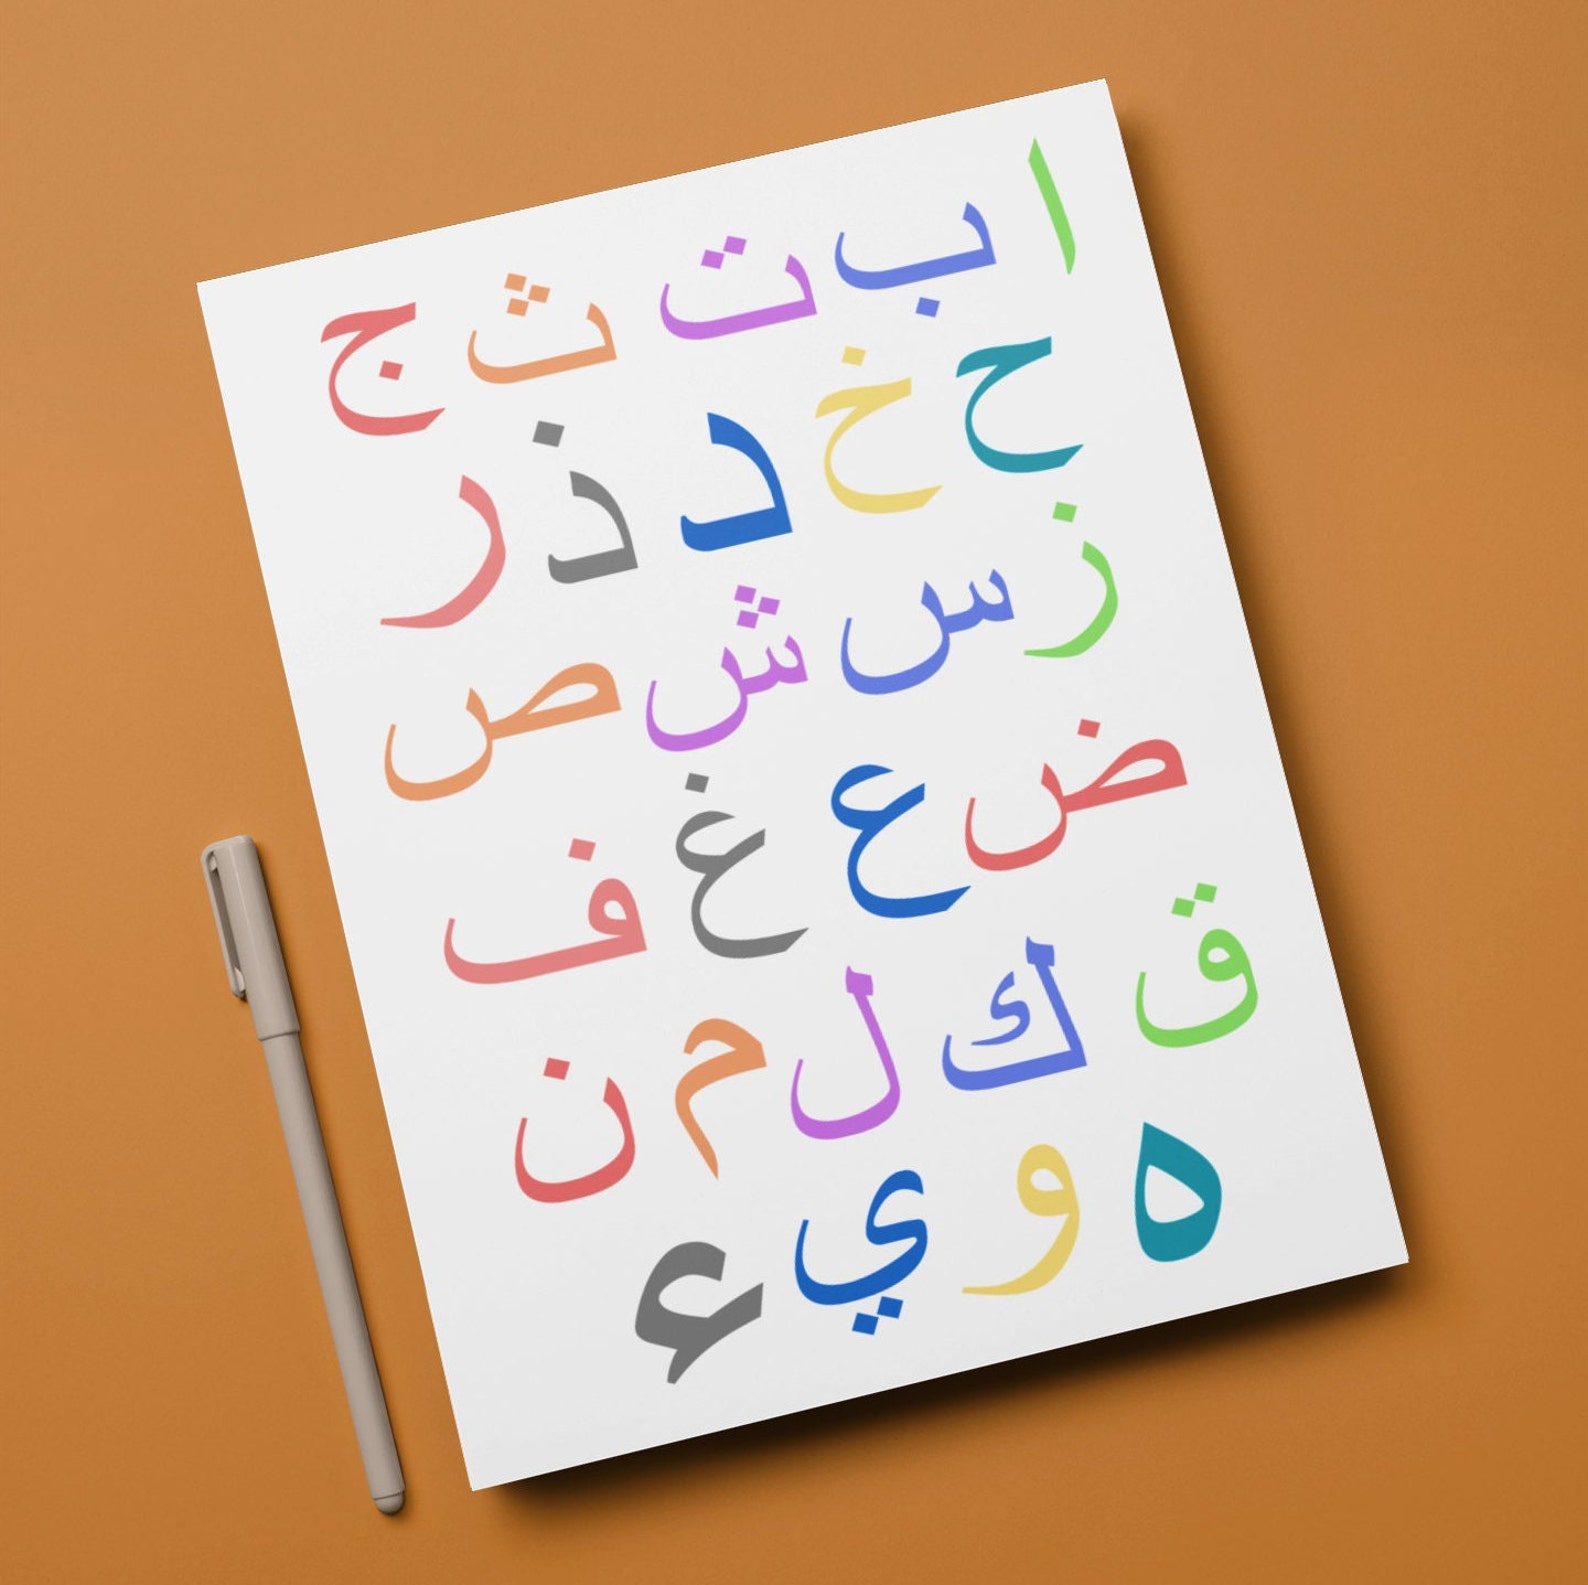 ا ب ت ث ج
ح خ د ذ ر
ز س ش ص
ض ع غ ف
ق ك ل م ن
ه و ي ء